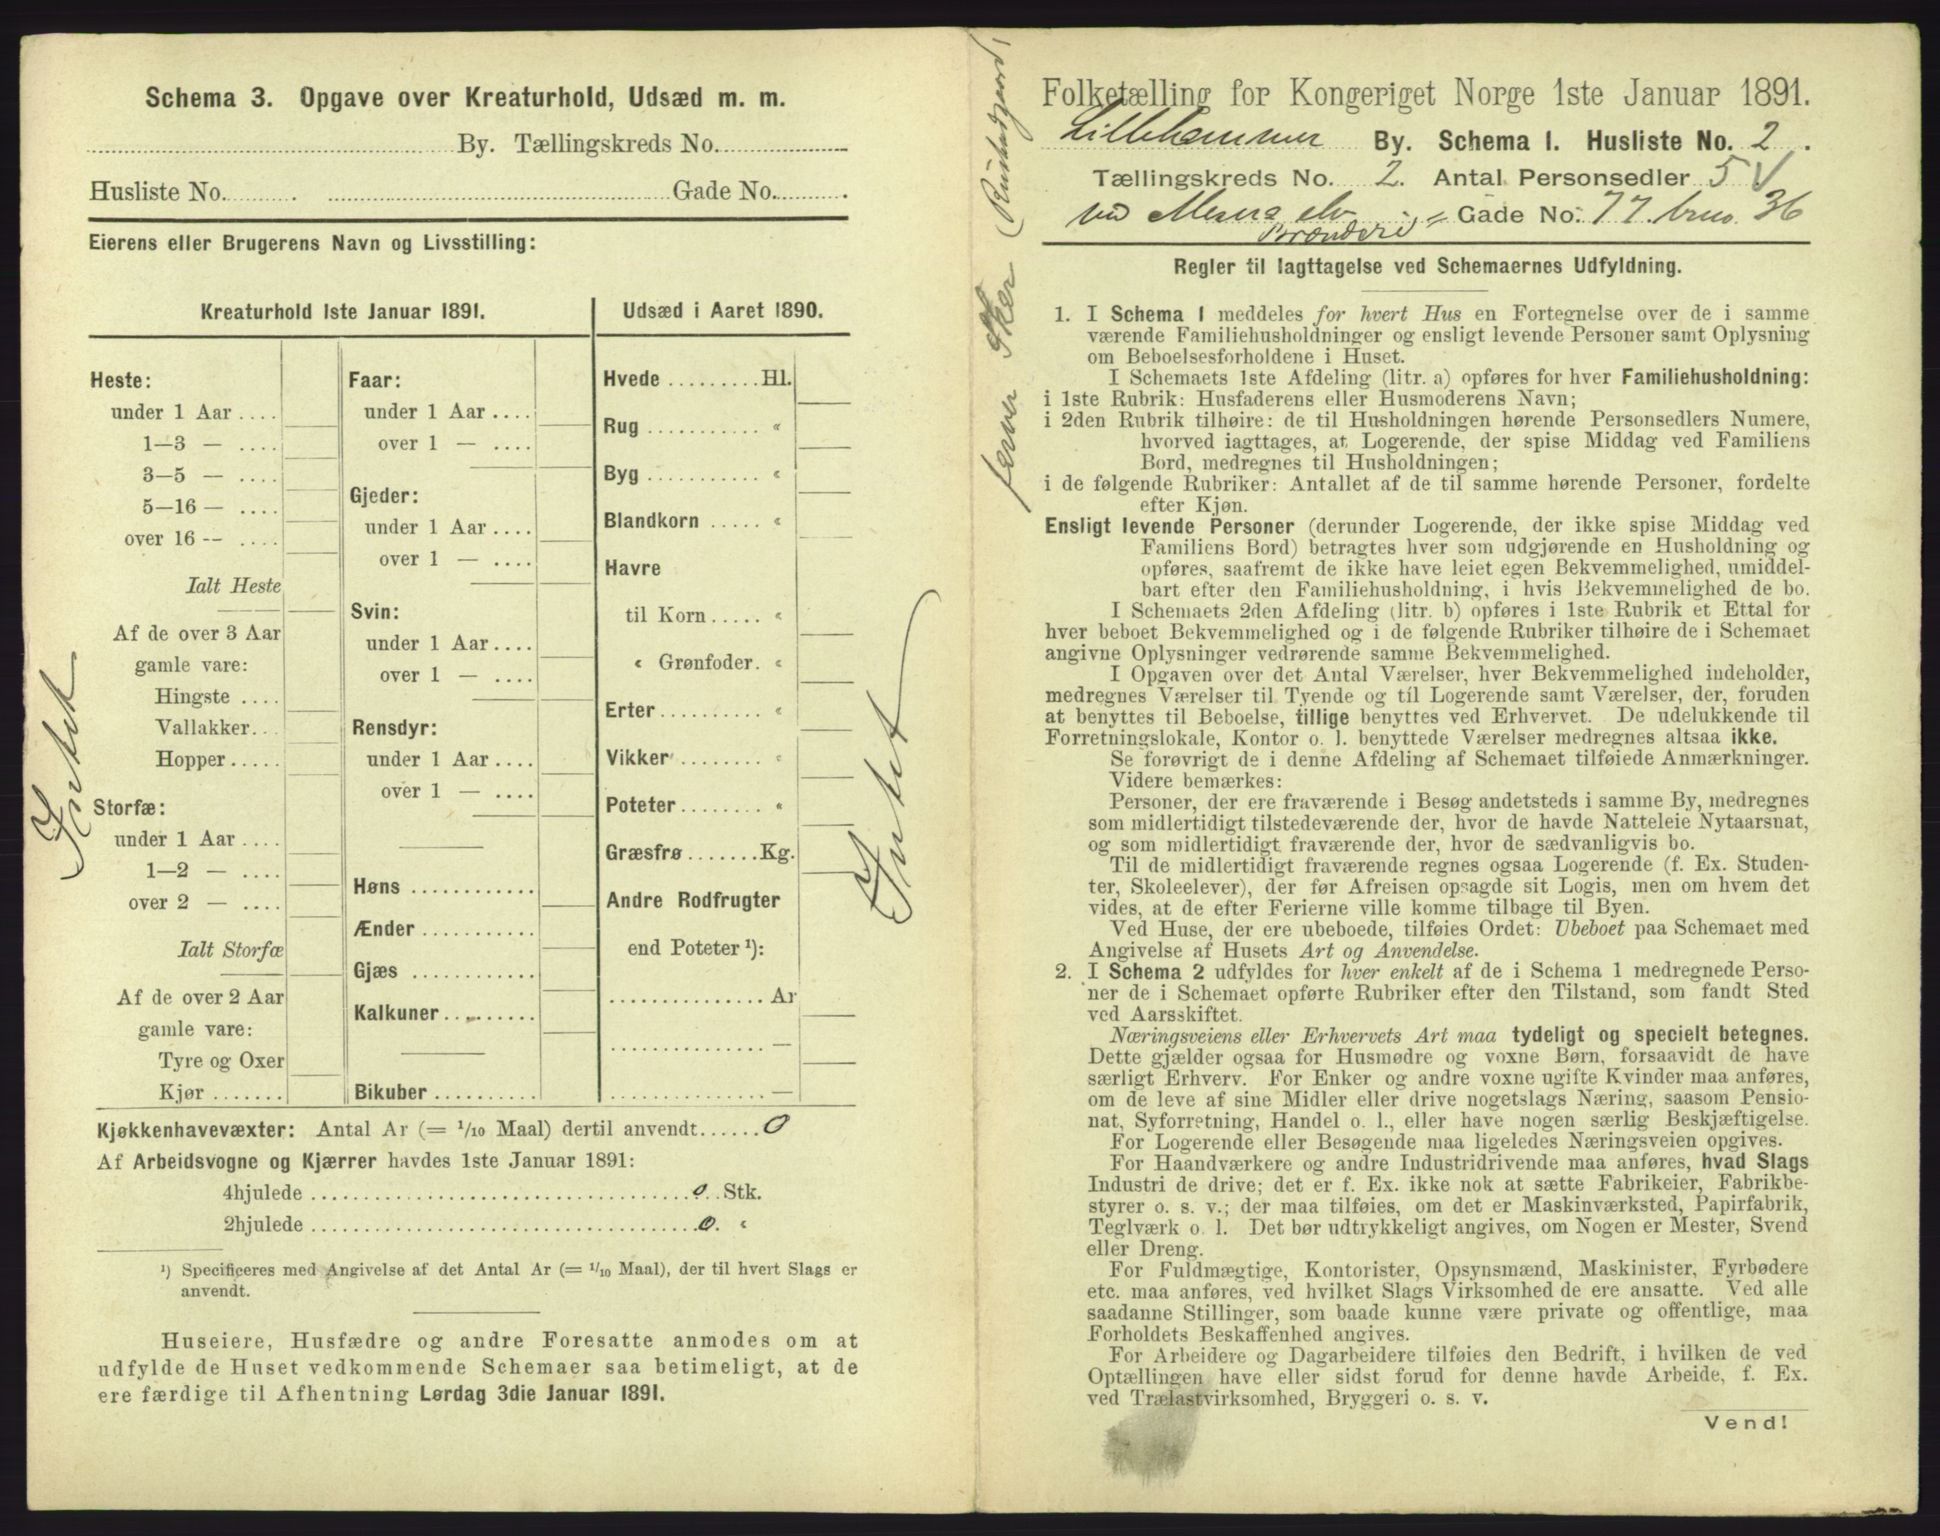 Schema 3. Opgave over Kreaturhold, Udsæd m. m.
By. Tællingskreds No.
Husliste No. Gade No.
Eierens eller Brugerens Navn og Livsstilling:
Kreaturhold 1ste Januar 1891.
Heste:
under 1 Aar
1—3 —
3—5 —
5—16 —
over 16 —
Ialt Heste
Af de over 3 Aar
gamle vare:
Hingste
Vallakker
Hopper
Storfæ:
under 1 Aar
1—2 —
over 2 —
Ialt Storfæ
Af de over 2 Aar
gamle vare:
Tyre og Oxer
Kjør
Intet
Faar:
under 1 Aar
over 1 —
Gjeder:
under 1 Aar
over 1 —
Svin:
under 1 Aar
over 1 —
Rensdyr:
under 1 Aar
over 1 —
Høns
Ænder
Gjæs
Kalkuner
Bikuber
Udsæd i Aaret 1890.
Hvede Hl.
Rug "
Byg "
Blandkorn "
Havre
til Korn "
" Grønfoder. "
Erter "
Vikker "
Poteter "
Græsfrø Kg.
Andre Rodfrugter
end Poteter ¹):
Ar
—
—
Intet
Kjøkkenhavevæxter: Antal Ar (= 1/10 Maal) dertil anvendt 0
Af Arbeidsvogne og Kjærrer havdes 1ste Januar 1891:
4hjulede 0 Stk.
2hjulede 0. "
¹) Specificeres med Angivelse af det Antal Ar (= 1/10 Maal), der til hvert Slags er
anvendt.
Huseiere, Husfædre og andre Foresatte anmodes om at
udfylde de Huset vedkommende Schemaer saa betimeligt, at de
ere færdige til Afhentning Lørdag 3die Januar 1891.
Folketælling for Kongeriget Norge 1ste Januar 1891.
Lillehammer By. Schema 1. Husliste No. 2.
Tællingskreds No. 2. Antal Personsedler 5 V
ved Mesna elv = Gade No. 77. brus 36
Brænderi
Regler til Iagttagelse ved Schemaernes Udfyldning.
1. I Schema 1 meddeles for hvert Hus en Fortegnelse over de i samme
værende Familiehusholdninger og ensligt levende Personer samt Oplysning
om Beboelsesforholdene i Huset.
I Schemaets 1ste Afdeling (litr. a) opføres for hver Familiehusholdning:
i 1ste Rubrik: Husfaderens eller Husmoderens Navn;
i 2den Rubrik tilhøire: de til Husholdningen hørende Personsedlers Numere,
hvorved iagttages, at Logerende, der spise Middag ved Familiens
Bord, medregnes til Husholdningen;
i de følgende Rubriker: Antallet af de til samme hørende Personer, fordelte
efter Kjøn.
Ensligt levende Personer (derunder Logerende, der ikke spise Middag ved
Familiens Bord) betragtes hver som udgjørende en Husholdning og
opføres, saafremt de ikke have leiet egen Bekvemmelighed, umiddel-
bart efter den Familiehusholdning, i hvis Bekvemmelighed de bo.
I Schemaets 2den Afdeling (litr. b) opføres i 1ste Rubrik et Ettal for
hver beboet Bekvemmelighed og i de følgende Rubriker tilhøire de i Schemaet
angivne Oplysninger vedrørende samme Bekvemmelighed.
I Opgaven over det Antal Værelser, hver Bekvemmelighed indeholder,
medregnes Værelser til Tyende og til Logerende samt Værelser, der, foruden
at benyttes til Beboelse, tillige benyttes ved Erhvervet. De udelukkende til
Forretningslokale, Kontor o. l. benyttede Værelser medregnes altsaa ikke.
Se forøvrigt de i denne Afdeling af Schemaet tilføiede Anmærkninger.
Videre bemærkes:
Personer, der ere fraværende i Besøg andetsteds i samme By, medregnes
som midlertidigt tilstedeværende der, hvor de havde Natteleie Nytaarsnat,
og som midlertidigt fraværende der, hvor de sædvanligvis bo.
Til de midlertidigt fraværende regnes ogsaa Logerende (f. Ex. Studen-
ter, Skoleelever), der før Afreisen opsagde sit Logis, men om hvem det
vides, at de efter Ferierne ville komme tilbage til Byen.
Ved Huse, der ere ubeboede, tilføies Ordet: Ubeboet paa Schemaet med
Angivelse af Husets Art og Anvendelse.
2. I Schema 2 udfyldes for hver enkelt af de i Schema 1 medregnede Perso-
ner de i Schemaet opførte Rubriker efter den Tilstand, som fandt Sted
ved Aarsskiftet.
Næringsveiens eller Erhvervets Art maa tydeligt og specielt betegnes.
Dette gjælder ogsaa for Husmødre og voxne Børn, forsaavidt de have
særligt Erhverv. For Enker og andre voxne ugifte Kvinder maa anføres,
om de leve af sine Midler eller drive nogetslags Næring, saasom Pensio-
nat, Syforretning, Handel o. l., eller have nogen særlig Beskjæftigelse.
For Logerende eller Besøgende maa ligeledes Næringsveien opgives.
For Haandværkere og andre Industridrivende maa anføres, hvad Slags
Industri de drive; det er f. Ex. ikke nok at sætte Fabrikeier, Fabrikbe-
styrer o. s. v.; der maa tilføies, om det er Maskinværksted, Papirfabrik,
Teglværk o. l. Det bør udtrykkeligt angives, om Nogen er Mester, Svend
eller Dreng.
For Fuldmægtige, Kontorister, Opsynsmænd, Maskinister, Fyrbødere
etc. maa anføres, ved hvilket Slags Virksomhed de ere ansatte. Ved alle
saadanne Stillinger, som baade kunne være private og offentlige, maa
Forholdets Beskaffenhed angives.
For Arbeidere og Dagarbeidere tilføies den Bedrift, i hvilken de ved
Optællingen have eller sidst forud for denne havde Arbeide, f. Ex.
ved Trælastvirksomhed, Bryggeri o. s. v.
Vend!